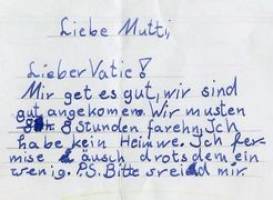 Liebe Mutti,
Lieber Vatie!
Mir get es gut, wir sind
gut angekomen. Wir musten
8 Stunden farehn. Ich
habe kein Heimwe. Ich fer-
mise äusch drotsdem ein
wenig. P.S. Bitte sreid mir